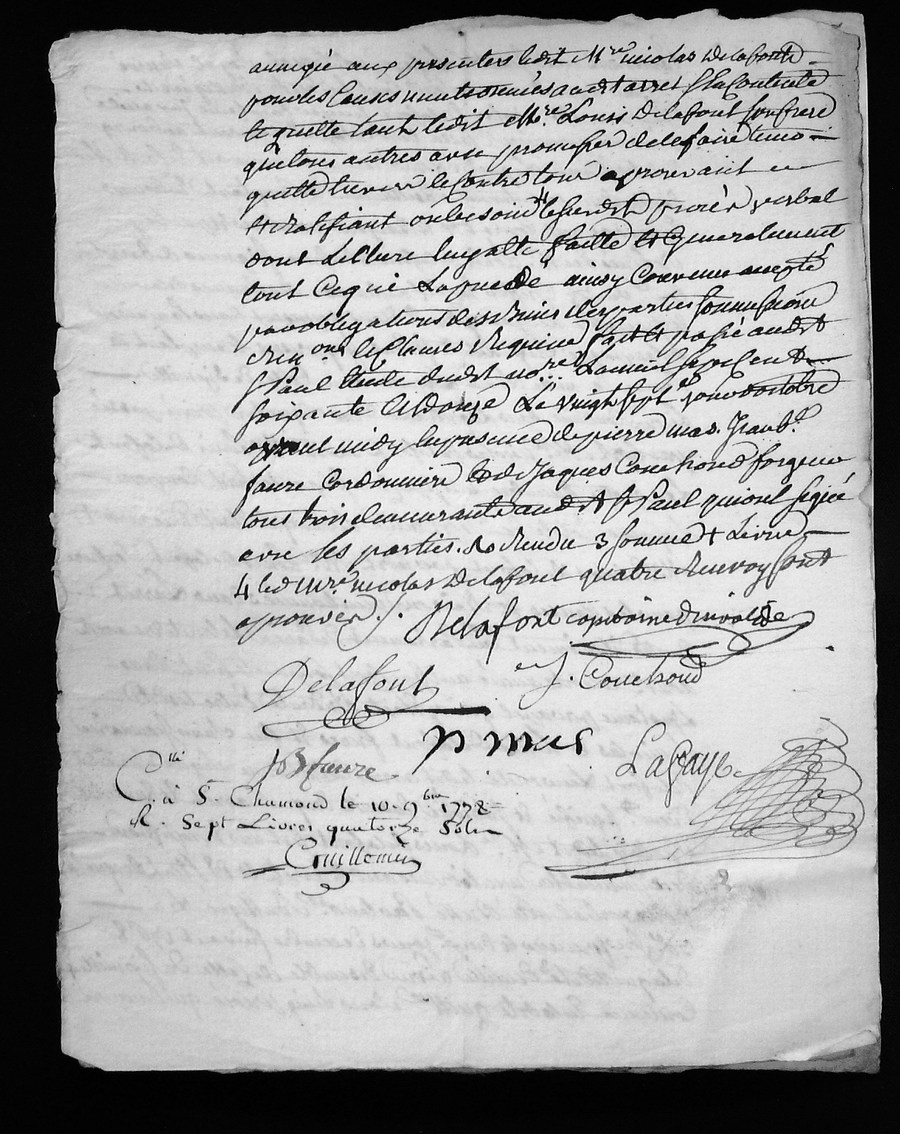 aux presentes ledit Mre nicolas Delafont
pour les causes audit arret
quitte tant ledit Mre. Louis Delafont son frere
que tous autres avec promesse de le faire tenir
quitte envers et contre tous aprouvant
et ratiffiant en besoin lesusdt procès verbal
dont lecture luy a été faitte et generalement
tout ce que ainsy convenu accepté
par obligations des biens des parties soumissions
ren.ons et clauses requises fait et passé audit
St Paul etude dudit nore. L'an mil sept cent
soixante et douze Le vingt sept octobre
avant midy en presence de pierre mas, Jean Bte
faure cordonnier et de Jaques Couchoud forgeur
tous trois demeurants audit St Paul qui ont signé
avec les parties. 3 somme + Livres
4 led. Mre. nicolas Delafont quatre renvoy sont
aprouvés /. Delafont capitaine d'invalide
Delafont J. Couchoud
p mas
JB faure Lafaye
C.lé à St. Chamond le 10. 9bre 1772
R. Sept Livres quatorze Sols
Guillemin